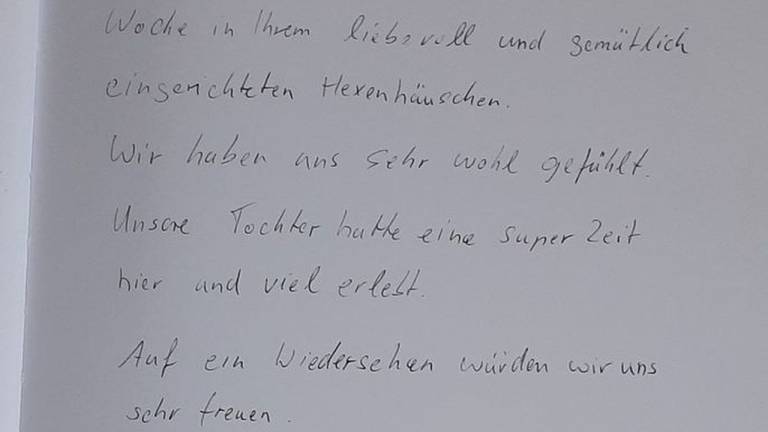 Woche in Ihrem liebevoll und gemütlich
eingerichteten Hexenhäuschen.
Wir haben uns sehr wohl gefühlt.
Unsere Tochter hatte eine super Zeit
hier und viel erlebt.
Auf ein Wiedersehen würden wir uns
sehr freuen.